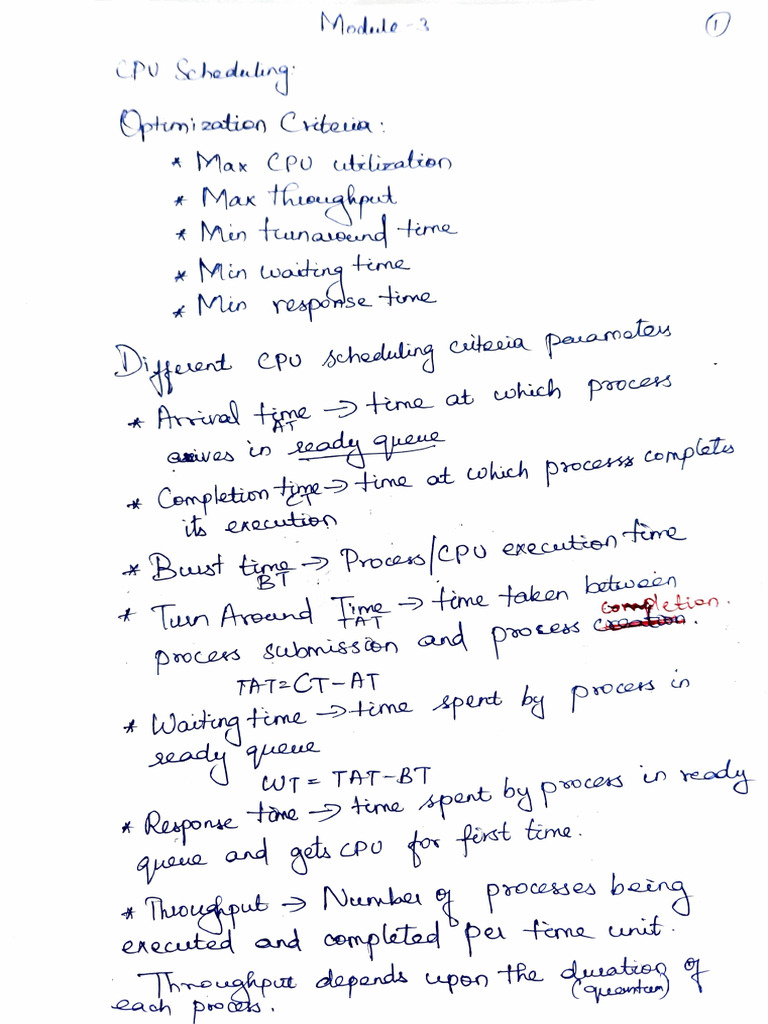 Module-3
①
CPU Scheduling.
Optimization Criteria:
* Max CPU utilization
* Max throughput
* Min turnaround time
* Min waiting time
* Min response time
Different CPU scheduling criteria parameters
* Arrival time → time at which process
AT
arives in ready queue
* Completion time → time at which processs completes
CT
its execution
* Burst time → Process/CPU execution time
BT
* Turn Around Time → time taken between
TAT
completion.
process submission and process creation.
TAT=CT-AT
* Waiting time → time spent by process in
ready queue
WT = TAT-BT
* Response time → time spent by process in ready
queue and gets CPU for first time.
* Throughput → Number of processes being
executed and completed per time unit.
Throughput depends upon the duration of
(quantum)
each process.